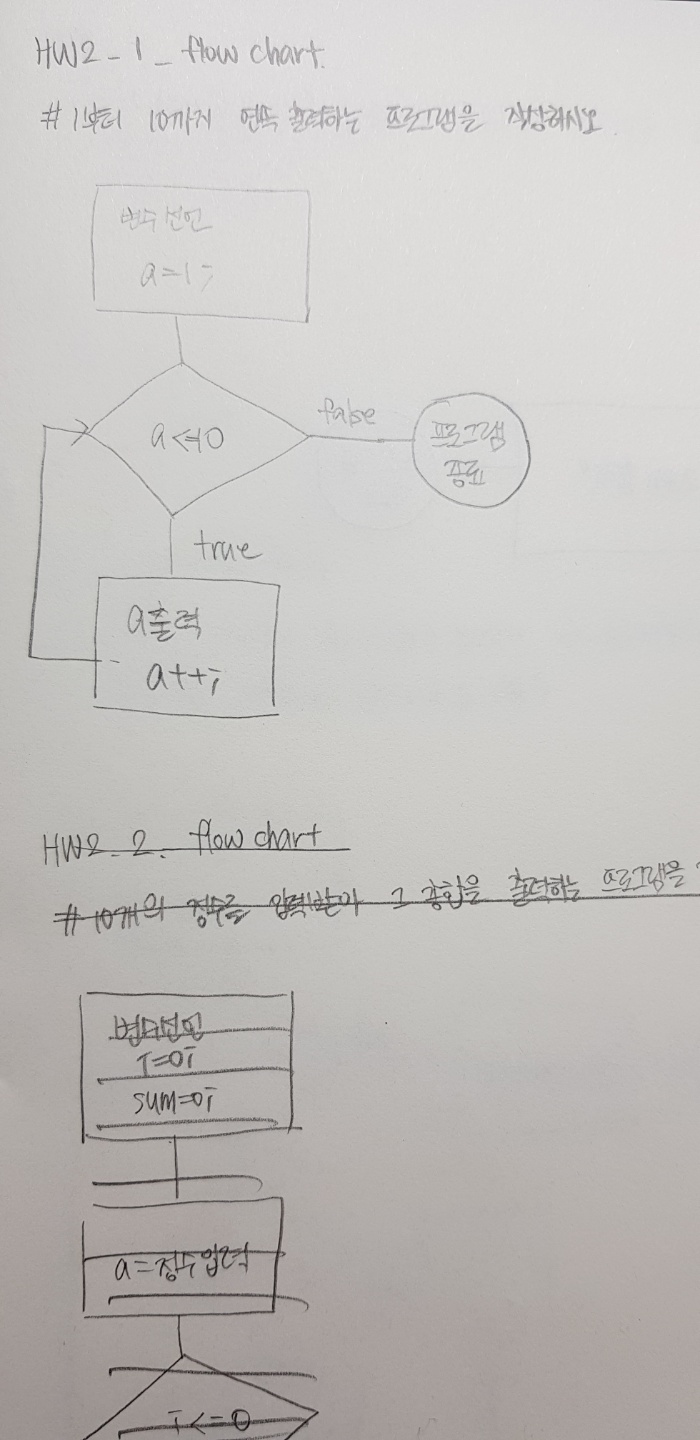 HW2-1_flow chart.
#1부터 10까지 연속 출력하는 프로그램을 작성하시오.
변수 선언
a=1;
a<=10
false
프로그램
종료
true
a출력
a++;
HW2_2. flow chart
#10개의 정수를 입력받아 그 총합을 출력하는 프로그램을
변수선언
i=0;
sum=0;
a=정수입력
i<=0